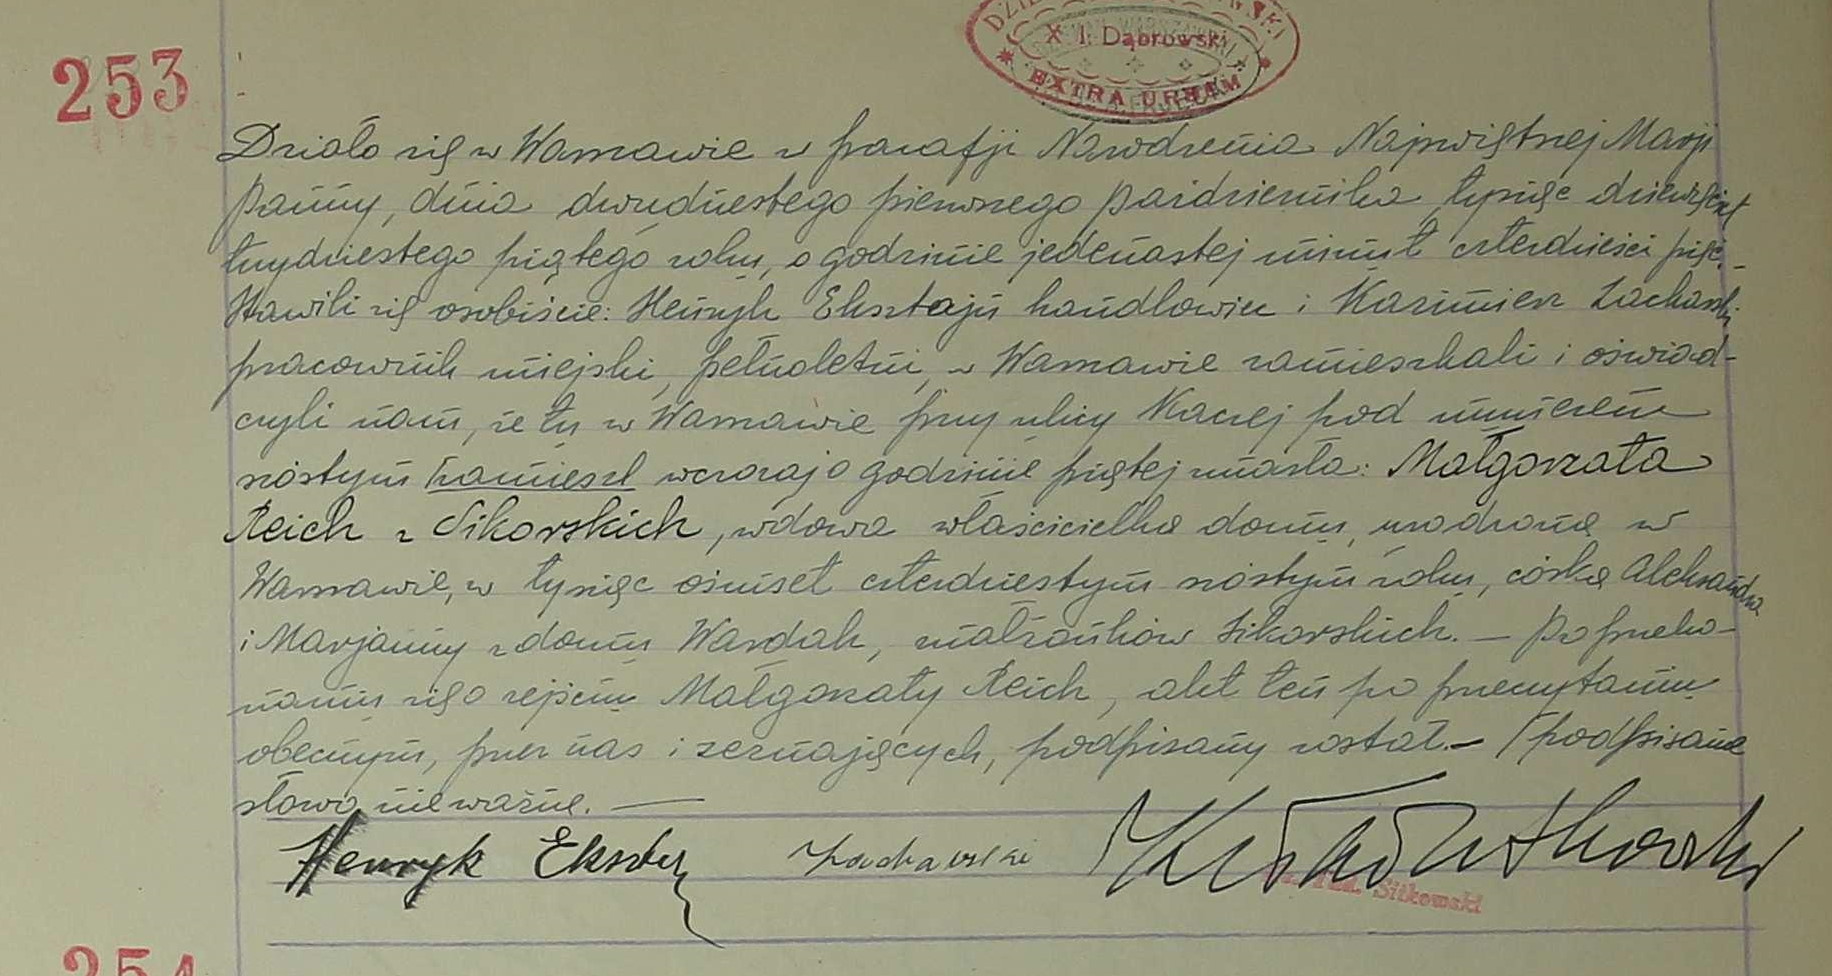 253
X I. Dąbrowski
EXTRA URBEM
Działo się w Warszawie w parafji Narodzenia Najświętszej Marji
Panny, dnia dwudziestego pierwszego października, tysiąc dziewięćset
trzydziestego piątego roku, o godzinie jedenastej minut czterdzieści pięć. –
Stawili się osobiście: Henryk Eksztajn handlowiec i Kazimierz Zacharski,
pracownik miejski, pełnoletni, w Warszawie zamieszkali i oświad-
czyli nam, że tu w Warszawie przy ulicy Kaczej pod numerem
szóstym zamieszk wczoraj o godzinie piątej zmarła: Małgorzata
Reich z Sikorskich, wdowa właścicielka domu, urodzona w
Warszawie, w tysiąc ośmset czterdziestym szóstym roku, córka Aleksandra
i Marjanny z domu Wardak, małżonków Sikorskich. – Po przeko-
naniu się o zejściu Małgorzaty Reich, akt ten po przeczytaniu
obecnym, przez nas i zeznających, podpisany został. – /podpisane
słowo nieważne. —
Henryk Eksztej
Zacharski
Sitkowski
254